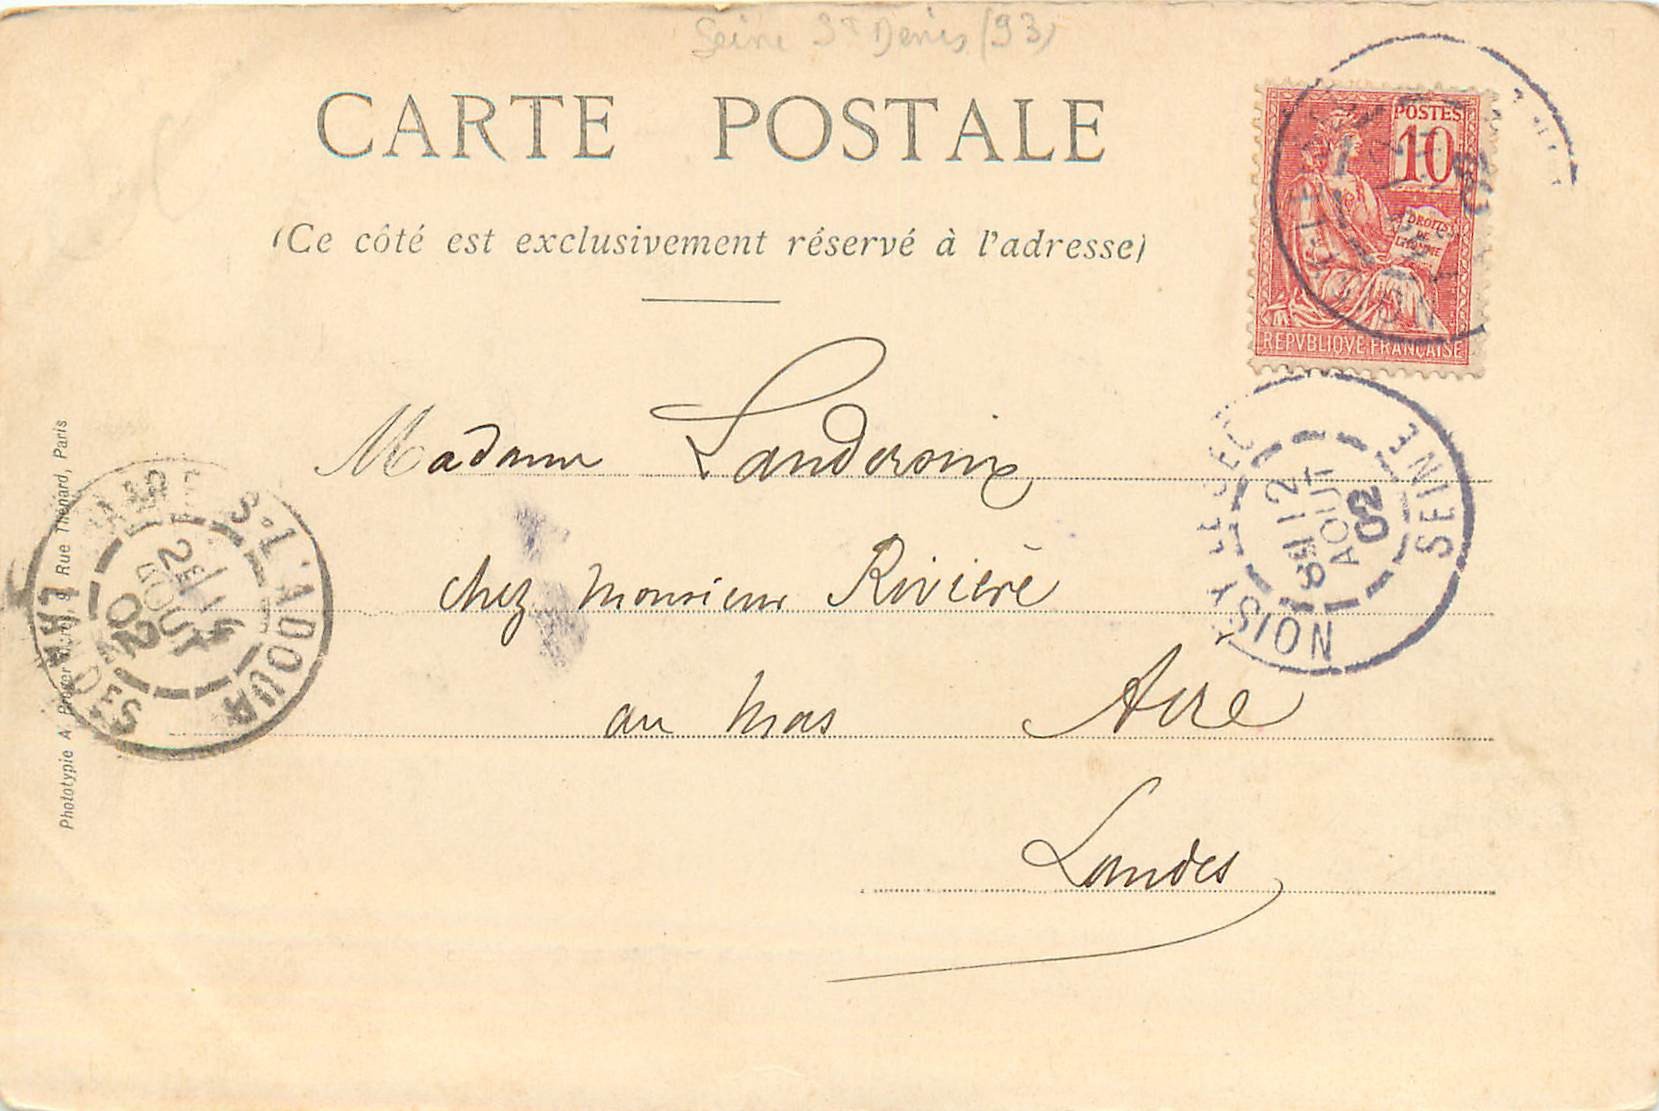 Seine St Denis (93)
CARTE POSTALE
(Ce côté est exclusivement réservé à l'adresse)
POSTES
10
DROITS
DE
L'HOMME
REPVBLIQVE FRANCAISE
Madame Landeroin
chez Monsieur Rivière
au Mas Aire
Landes
NOISY LE SEC
SEINE
12
AOUT
02
S-L'ADOUR
2E
14
AOUT
02
Phototypie A. Rue Thénard, Paris